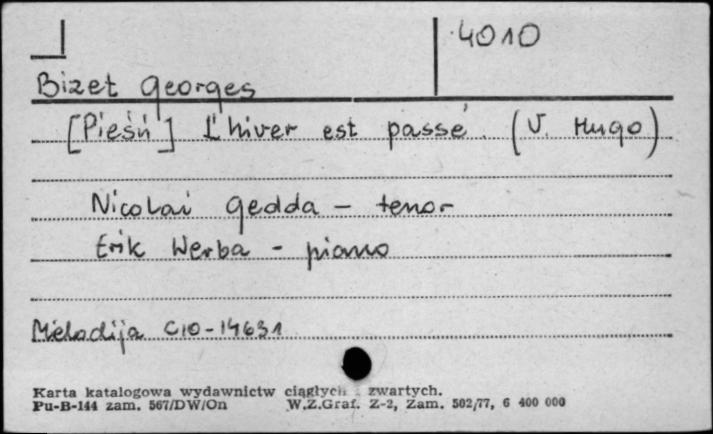 4010
Bizet Georges
[Pieśń] L'hiver est passé. (V. Hugo)
Nicolai Gedda - tenor
Erik Werba - piano
Miełodija C10-14631
Karta katalogowa wydawnictw ciągłych i zwartych.
Pu-B-144 zam. 567/DW/On W.Z.Graf. Z-2, Zam. 502/77, 6 400 000